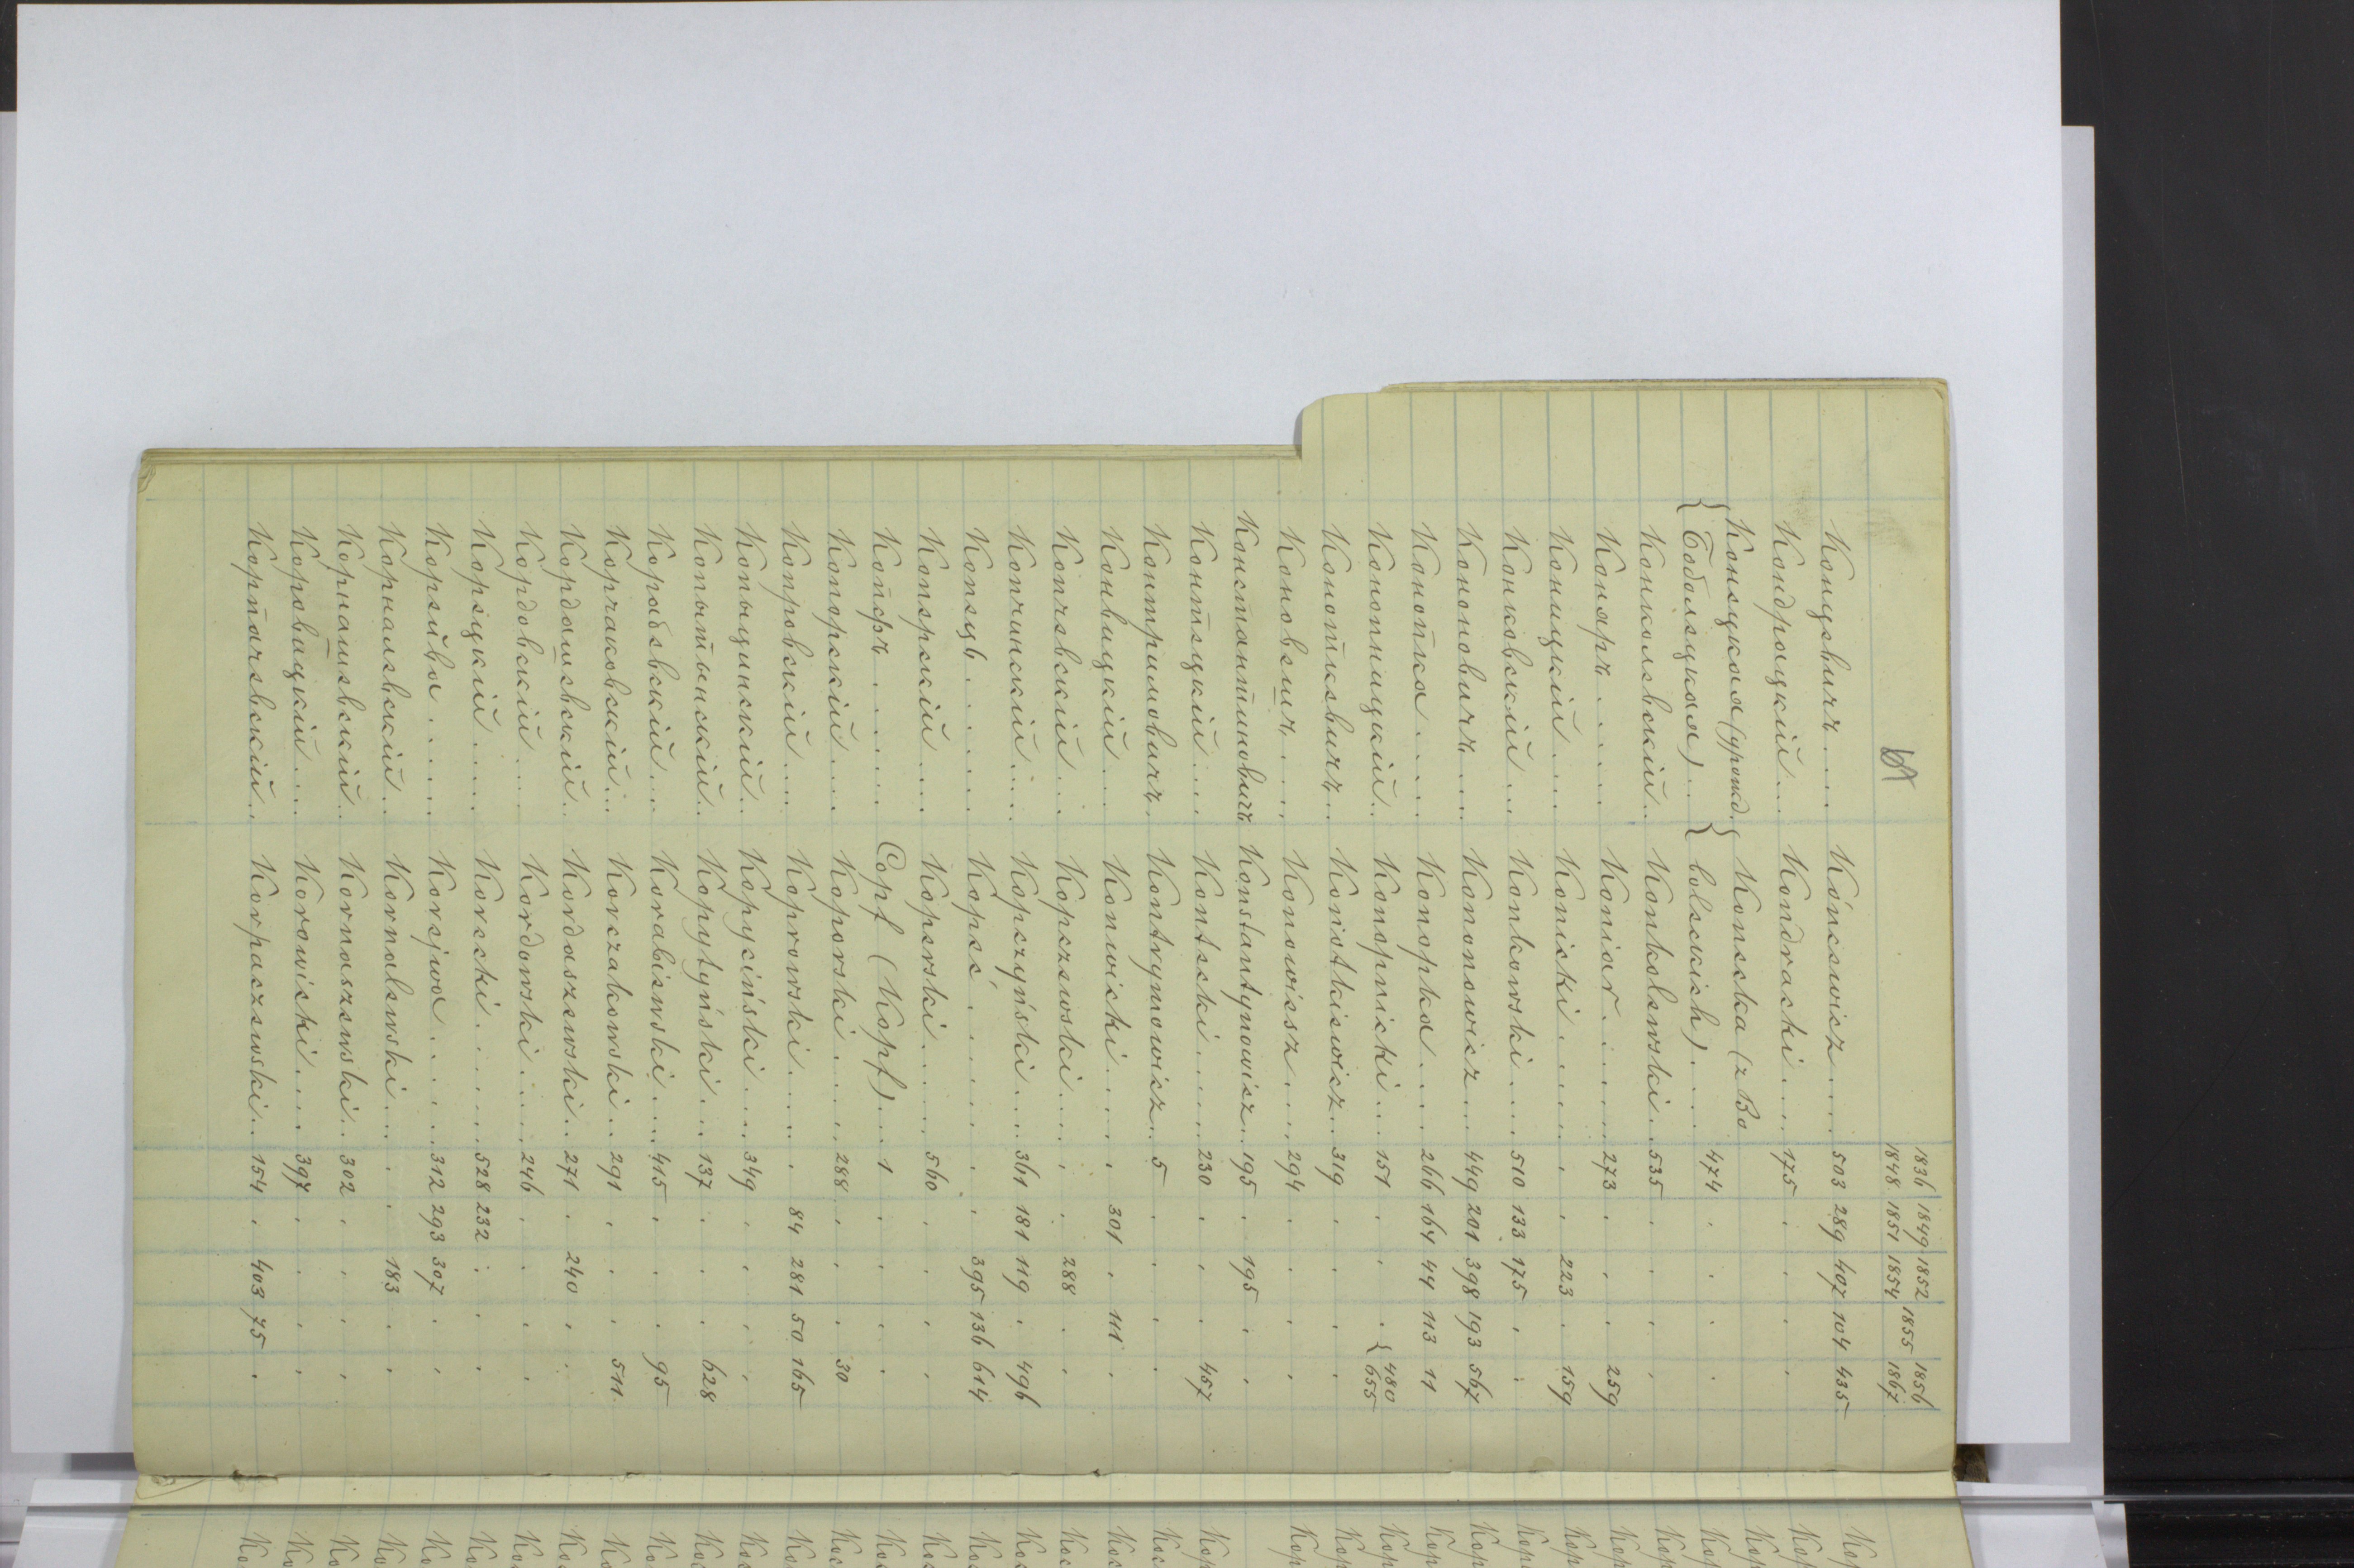 1836 1849 1852 1855 1856
1848 1851 1854 1867
Концевичъ.... Kóncewicz.... 503 289 407 104 435
Кондрацкій... Kondracki.... 175 . . . .
Конецкая (урожд. } Konecka (z Bo
{ Боболецкая)... } boleckich).... 474 . . . .
Конколевскій.. Konkolewski.. 535 . . . .
Коняръ...... Koniar...... 273 . . . 259
Коницкій.... Konicki...... . . 223 . 159
Конковскій... Konkowski.... 510 133 175 . .
Кононовичъ.... Kononowicz... 449 201 398 193 567
Конопка..... Konopka.... 266 164 44 113 11
Конопницкій.. Konopnicki... 151 . . . { 480
655
Конопткевичъ.. Konotkiewicz.. 319 . . . .
Коновешъ.... Konowiesz... 294 . . . .
Константиновичъ Konstantynowicz.. 195 . 195 . .
Контецкій.... Kontecki..... 230 . . . 457
Контримовичъ. Kontrymowicz. 5 . . . .
Конвицкій.... Konwicki.... . 301 . 111 .
Копчевскій... Kopczewski.... . . 288 . .
Копчинскій.... Kopczyński.... 361 181 119 . 496
Копець....... Kopeć....... . . 395 136 614
Коперскій.... Koperski..... 560 . . . .
Копфъ...... Copf (Kopf)... 1 . . . .
Копорскій.... Koporski..... 288 . . . 30
Копровскій.... Koprowski.... . 84 281 50 165
Копыцинскій.. Kopyciński.... 349 . . . .
Копытынскій.. Kopytyński... 137 . . . 628
Корабевскій... Korabiewski... 415 . . . 95
Корчаковскій... Korczakowski.. 291 . . . 511
Кордашевскій.. Kordaszewski.. 271 . 240 . .
Кордовскій.... Kordowski..... 246 . . . .
Корецкій..... Korecki...... 528 232 . . .
Корейва..... Korejwa..... 312 293 307 . .
Корналевскій.. Kornalewski... . . 183 . .
Корнашевскій. Kornaszewski.. 302 . . . .
Коровицкій.... Korowicki.... 397 . . . .
Корпачевскій.. Korpaczewski.. 154 . 403 75 .